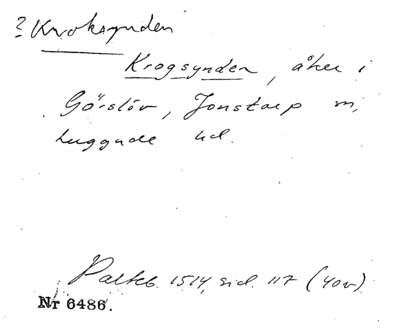 ? Kroksynden
Krogsynden, åker i
Görslöv, Jonstorp sn,
Luggude hd.
Palteb. 1514, sid. 117 (40v)
Nr 6486.